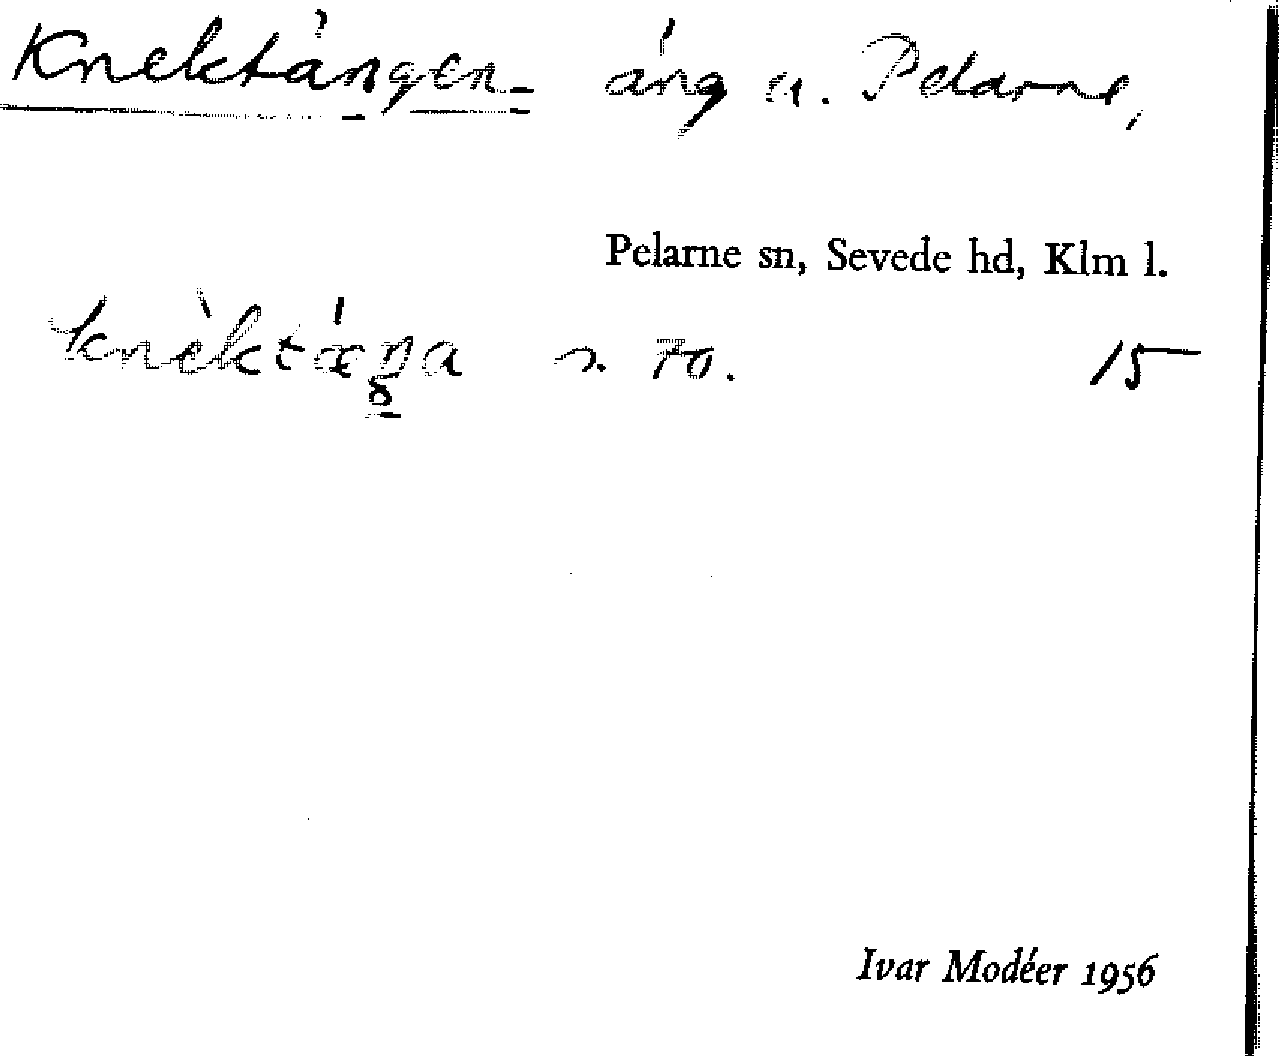 Knektängen äng u. Pelarne,
Pelarne sn, Sevede hd, Klm l.
s. 70. 15
Ivar Modéer 1956